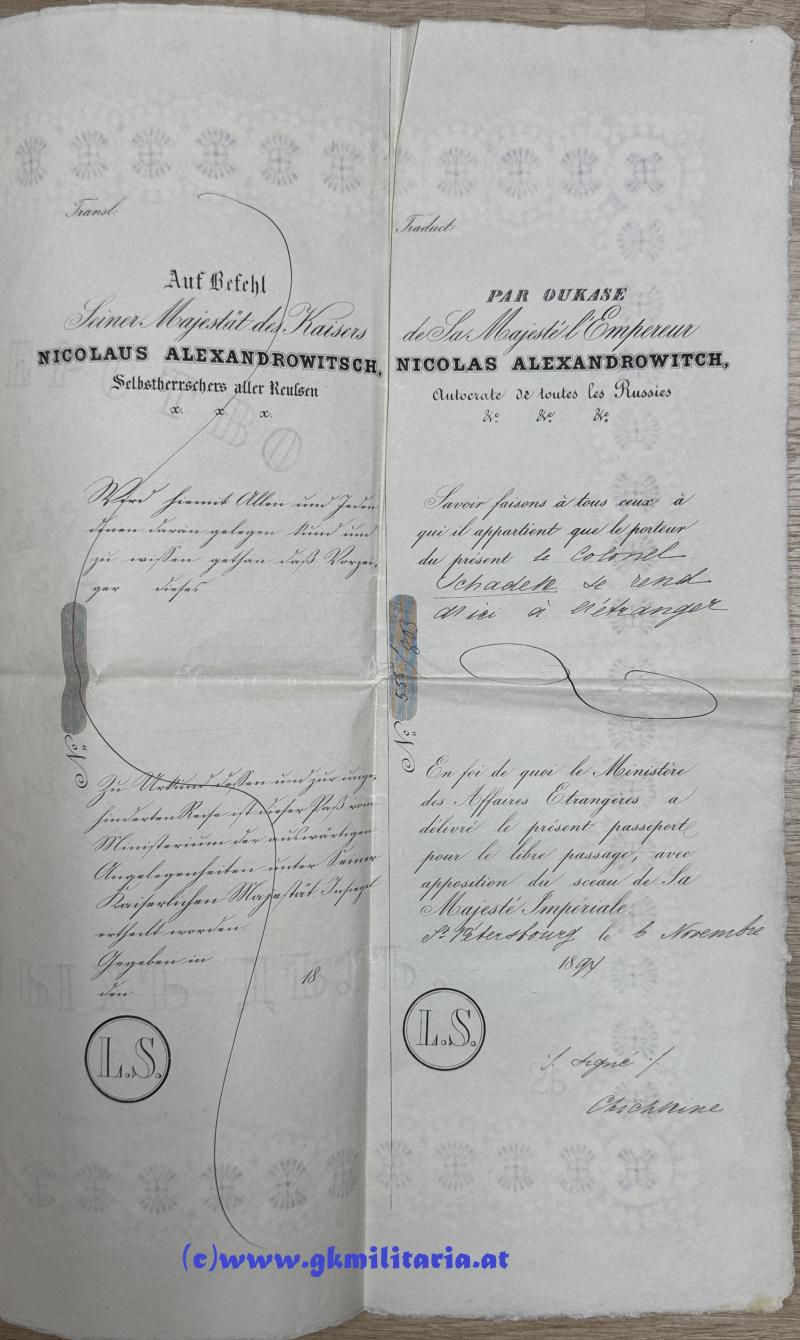 Transl:
Auf Befehl
Seiner Majestät des Kaisers
NICOLAUS ALEXANDROWITSCH,
Selbstherrschers aller Reußen
x. x. x.
Wird hiemit Allen und Jeden
denen daran gelegen kund und
zu wissen gethan daß Vorzei,
ger dieses
No
Zu Urkund dessen und zur unge,
hinderten Reise ist dieser Paß vom
Ministerium der auswärtigen
Angelegenheiten unter Seiner
Kaiserlichen Majestät Insiegel
ertheilt worden.
Gegeben in
den 18
L.S.
Traduct:
PAR OUKASE
de Sa Majesté l'Empereur
NICOLAS ALEXANDROWITCH,
Autocrate de toutes les Russies
&c &c &c
Savoir faisons à tous ceux à
qui il appartient que le porteur
du présent le Colonel
Schadek se rend
d'ici à l'étranger
No 555/803
En foi de quoi le Ministère
des Affaires Etrangères a
délivré le présent passeport
pour le libre passage, avec
apposition du sceau de Sa
Majesté Impériale.
St Pétersbourg le 6 Novembre
1894
L.S.
/. signé /.
Chichkine
(c)www.gkmilitaria.at